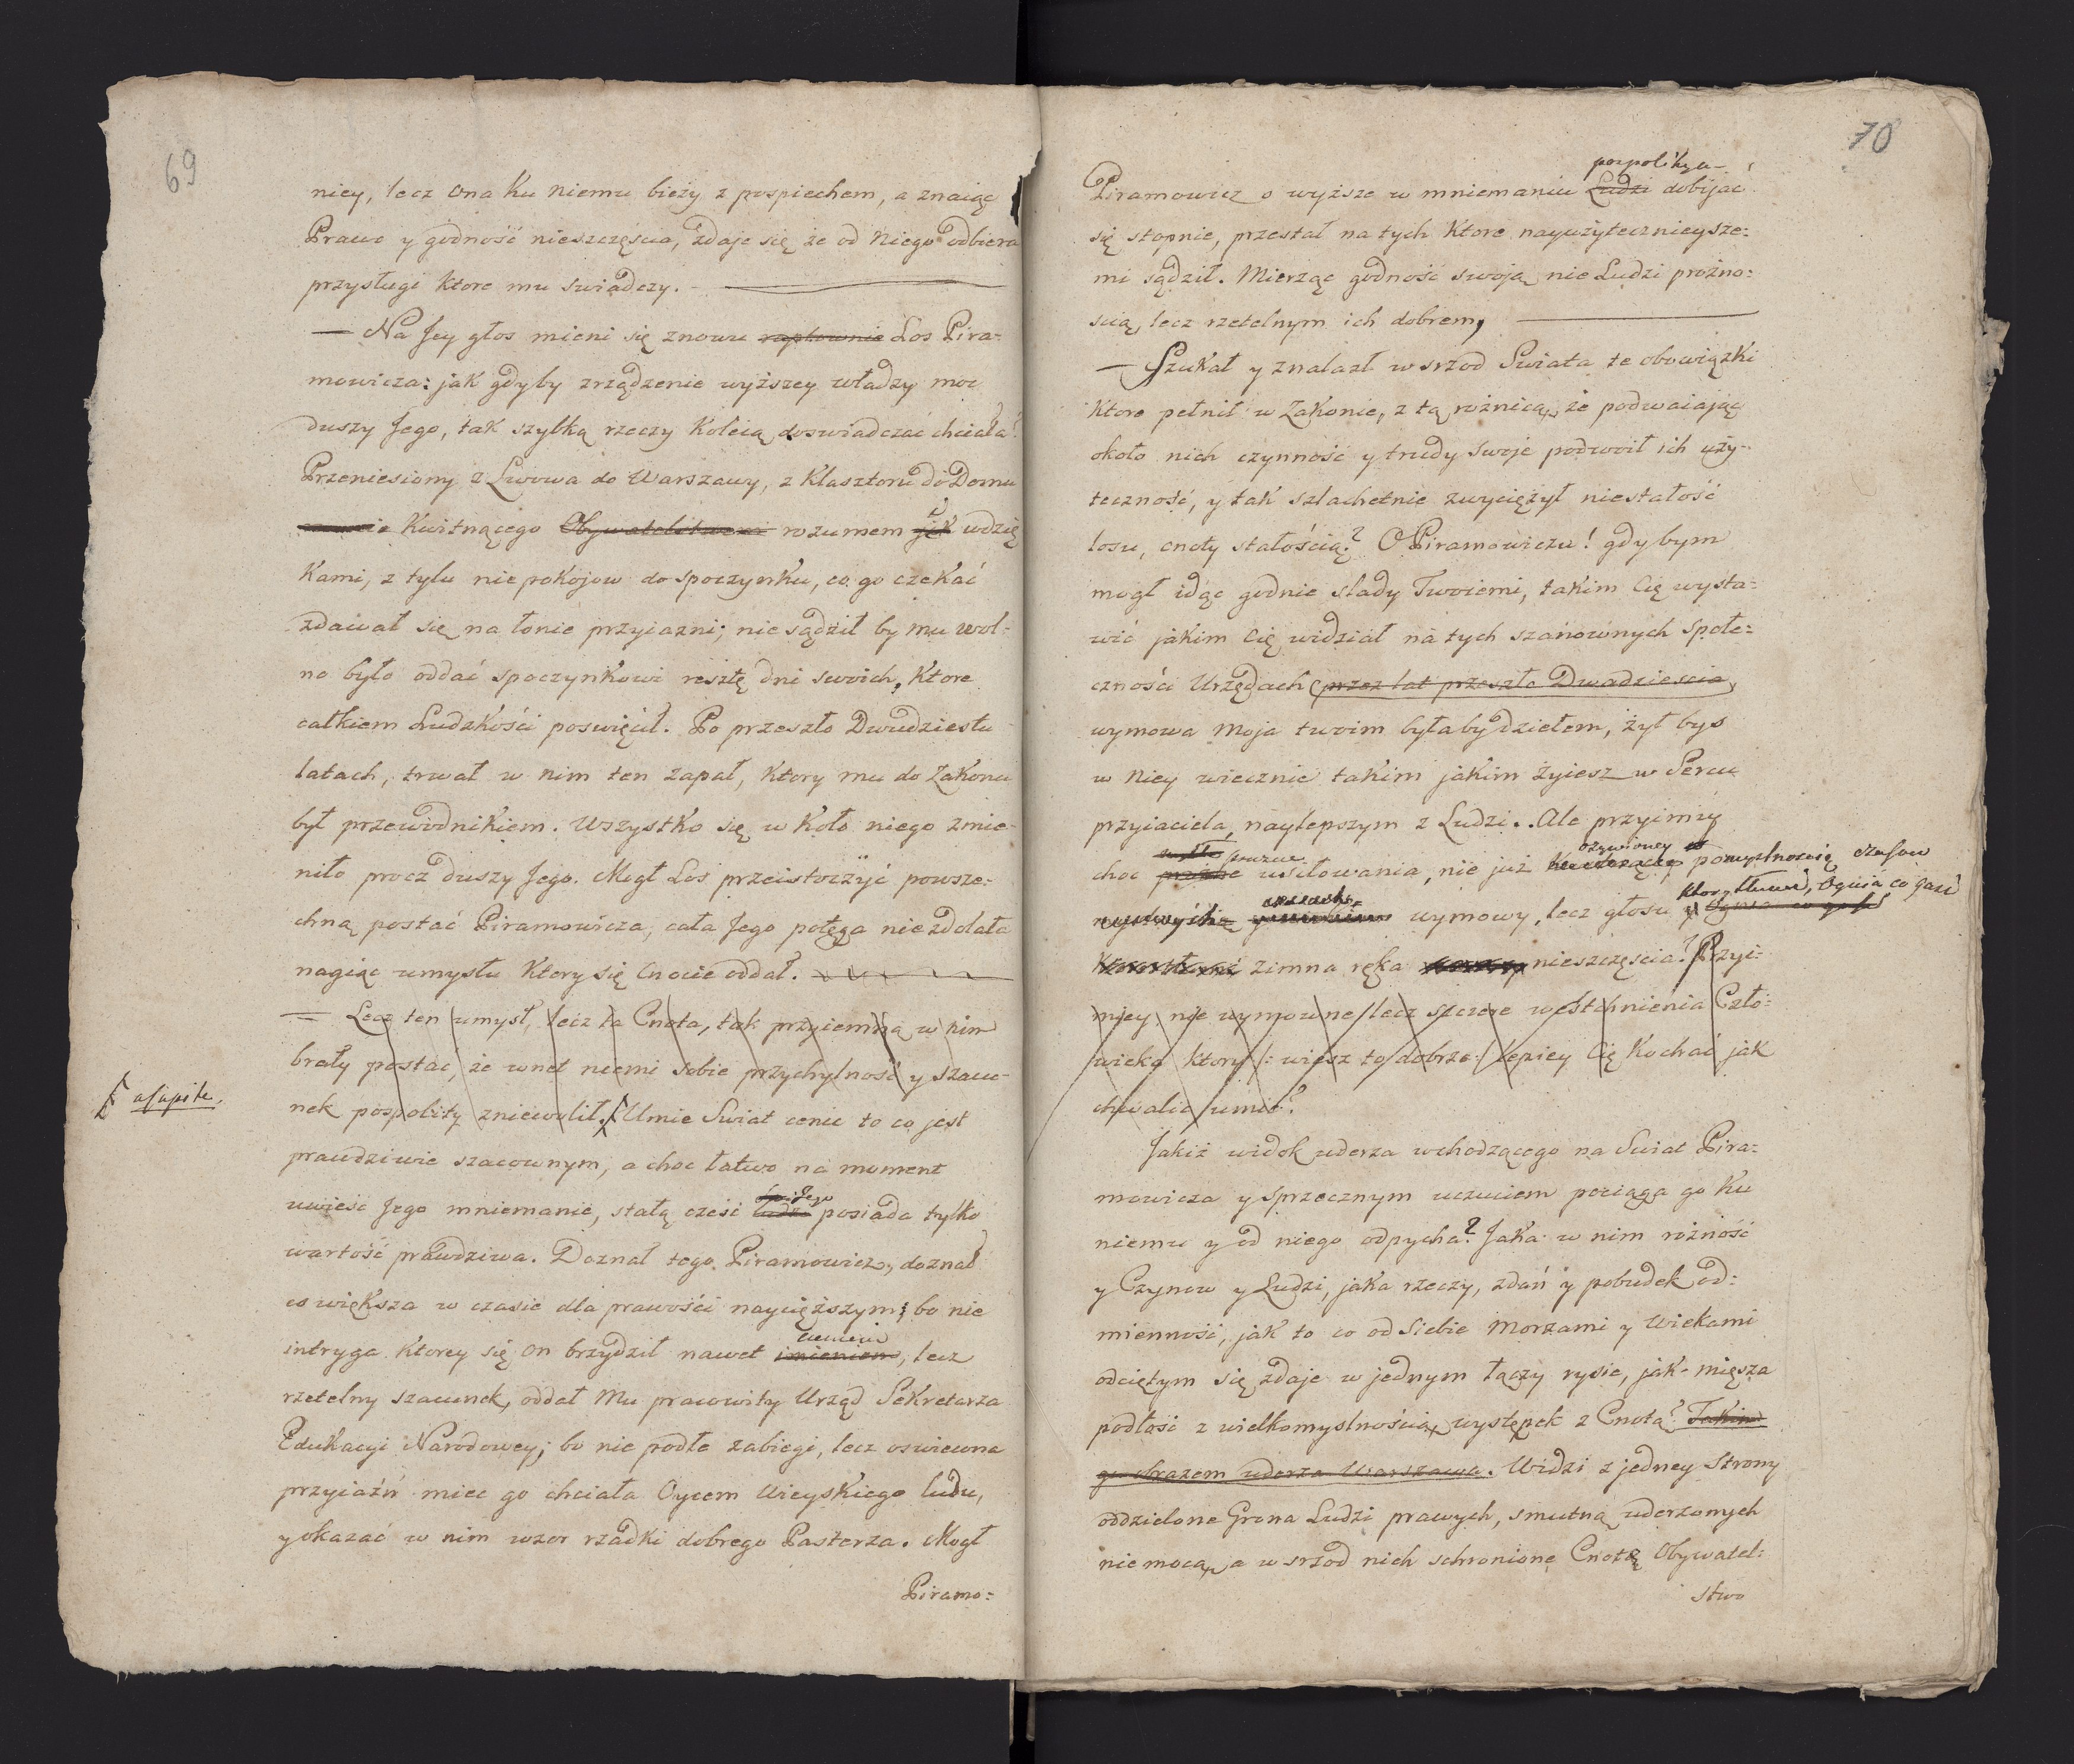 69
niey, lecz ona ku niemu bieży z pospiechem, a znaiąc
Prawo y godność nieszczęścia, zdaje się że od Niego odbiera
przysługi ktore mu swiadczy. -
— Na Jey głos mieni się znowu raptownie Los Pira-
mowicza: jak gdyby zrządzenie wyższey władzy moc
duszy Jego, tak szybką rzeczy Koleią doswiadczać chciała!
Przeniesiony z Lwowa do Warszawy, z Klasztoru do Domu
Kwitnącego Obywatelstwem rozumem jak wdzię
Kami, z tylu niepokojow do spoczynku, co go czekać
zdawał się na łonie przyiazni; nie sądził by mu wol-
no było oddać spoczynkowi resztę dni swoich, Ktore
całkiem Ludzkości poswięcił. Po przeszło Dwudziestu
latach, trwał w nim ten zapał, Ktory mu do Zakonu
był przewodnikiem. Wszystko się w koło niego zmie-
niło procz duszy Jego. Mogł Los przeistoczyć powsze-
chną postać Piramowicza, cała Jego potęga nie zdołała
nagiąc umysłu Ktory się Cnocie oddał.
— Lecz ten umysł, lecz ta Cnota, tak przyiemną w nim
brały postac, że wnet niemi sobie przychylność y szacu-
nek pospolity zniewolił. Umie Swiat cenic to co jest
a capite.
prawdziwie szacownym, a choc łatwo na moment
uwieść Jego mniemanie, stałą cześć Jego posiada tylko
wartość prawdziwa. Doznał tego Piramowicz, doznał
co większa w czasie dla prawości naycięższym; bo nie
intryga Ktorey się on brzydził nawet imieniem cieniem, lecz
rzetelny szacunek, oddał Mu pracowity Urząd Sekretarza
Edukacyi Narodowey; bo nie podłe zabiegi, lecz oswiecona
przyiaźń miec go chciała Oycem Wieyskiego ludu,
y okazać w nim wzor rzadki dobrego Pasterza. Mogł
Piramo:
70
Piramowicz o wyższe w mniemaniu Ludzi pospolitym dobijać
się stopnie, przestał na tych Ktore nayużytecznieysze:
mi sądził. Mierząc godność swoją nie Ludzi prożno:
scią, lecz rzetelnym ich dobrem,
— Szukał y znalazł wsrzod Swiata te obowiązki
Ktore pełnił w Zakonie, z tą rożnicą, że podwaiając
około nich czynność y trudy swoje podwoił ich uży-
teczność, y tak szlachetnie zwyciężył niestałość
losu, cnoty stałością? O Piramowiczu! gdybym
mogł idąc godnie slady Twoiemi, takim Cię wysta:
wić jakim Cię widział na tych szanownych Społe:
czności Urzędach przez lat przeszło Dwadziescia,
wymowa Moja twoim byłaby dziełem, żył bys
w Niey wiecznie takim jakim żyiesz w Sercu
przyiaciela, naylepszym z Ludzi. Ale przyimiy
choc usiłowania, nie już ożywioney pomyslnością czasow
wymowy, lecz głosu ktory tłumi, ognia co gasi
zimna ręka nieszczęscia? Przyi:
miey, nie wymowne lecz szczere westchnienia Czło:
wieka ktory /: wiesz to dobrze :/ lepiey Cię Kochać jak
chwalic umie?
Jakiż widok uderza wchodzącego na Swiat Pira:
mowicza y sprzecznym uczuciem pociąga go Ku
niemu y od niego odpycha? Jaka w nim rożność
y Czynow y Ludzi, jaka rzeczy, zdań y pobudek od:
mienność, jak to co od siebie Morzami y Wiekami
odciętym się zdaje w jednym łączy rysie, jak mięsza
podłość z wielkomyslnością, występek z Cnotą? Takim
go obrazem uderza Warszawa. Widzi z jedney Strony
oddzielone Grona Ludzi prawych, smutną uderzonych
niemocą, a wsrzod nich schronionę Cnotę Obywatel:
stwo